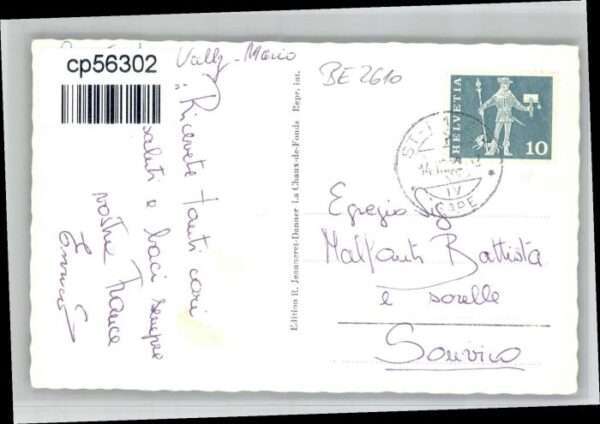 cp56302
Vally - Mario
"Ricevete tanti cari
saluti e baci sempre
vostre France
Edition R. Jeanneret-Danner La Chaux-de-Fonds Repr. int.
BE 2610
HELVETIA
10
ST-I
14
IV
Egregio Sig
Malfanti Battista
e sorelle
Sonvico